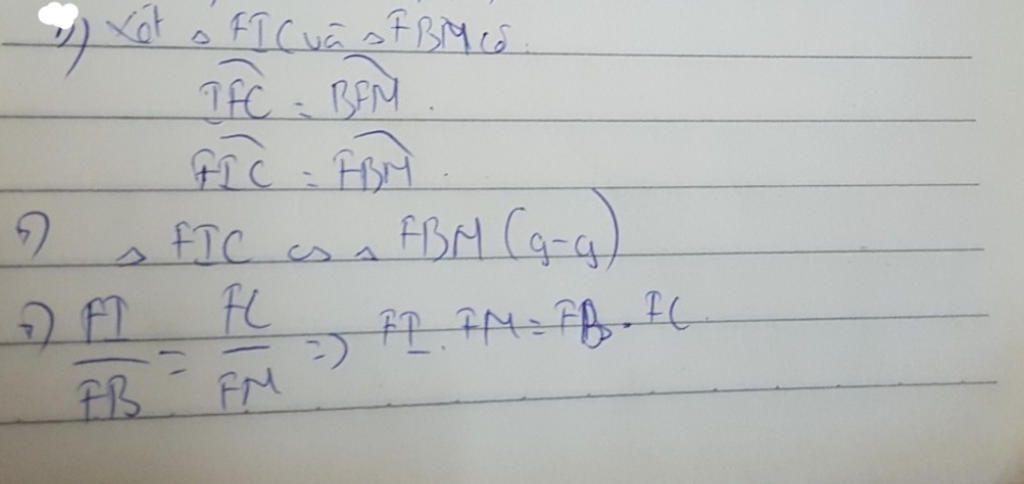 Xét △ FIC và △ FBM có:
IFC = BFM.
FIC = FBM.
=) △ FIC ∽ △ FBM (g-g)
=) FI/FB = FC/FM =) FI. FM = FB. FC.